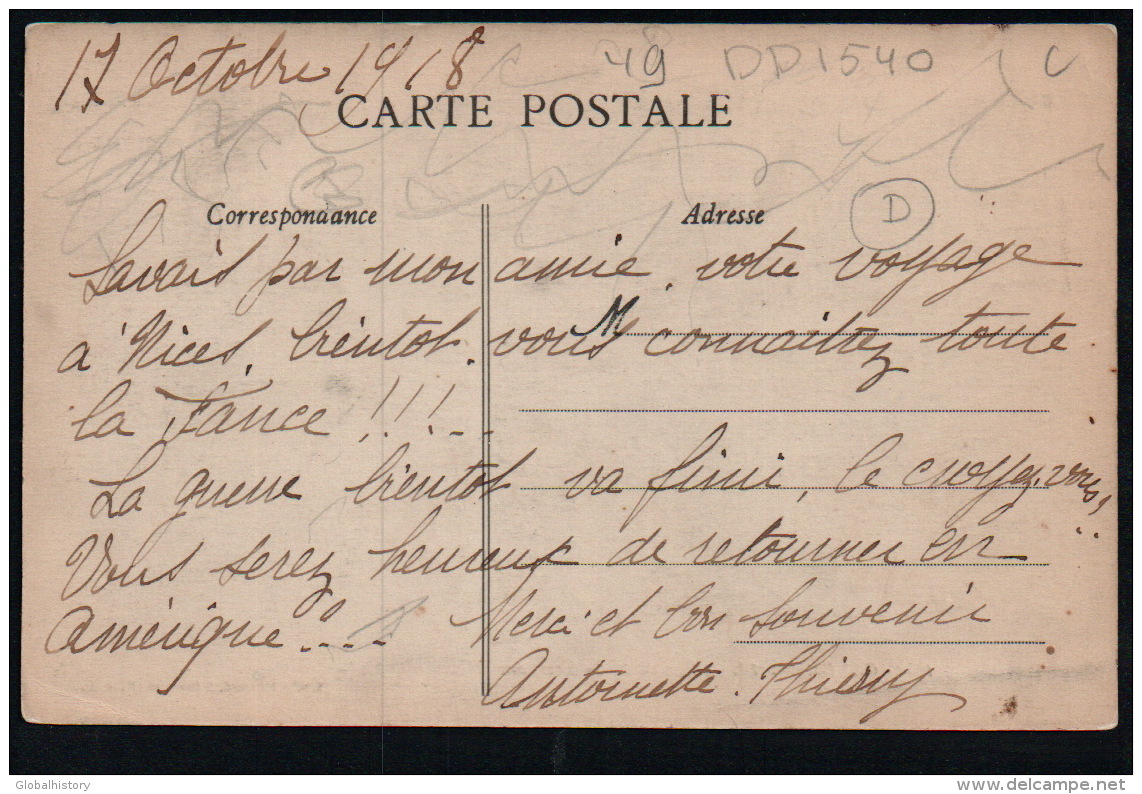 17 Octobre 1918
49 DD1540
CARTE POSTALE
Correspondance Adresse D
Savais par mon amie, votre voyage
à Nices, bientot, vous connaittez toute
M
la France !!!...
La guerre bientot va finir, le croyez-vous,
Vous serez heureux de retourner en
Amérique .... Merci et bon souvenir
Antoinette. Thierry
Globalhistory
delcampe.net